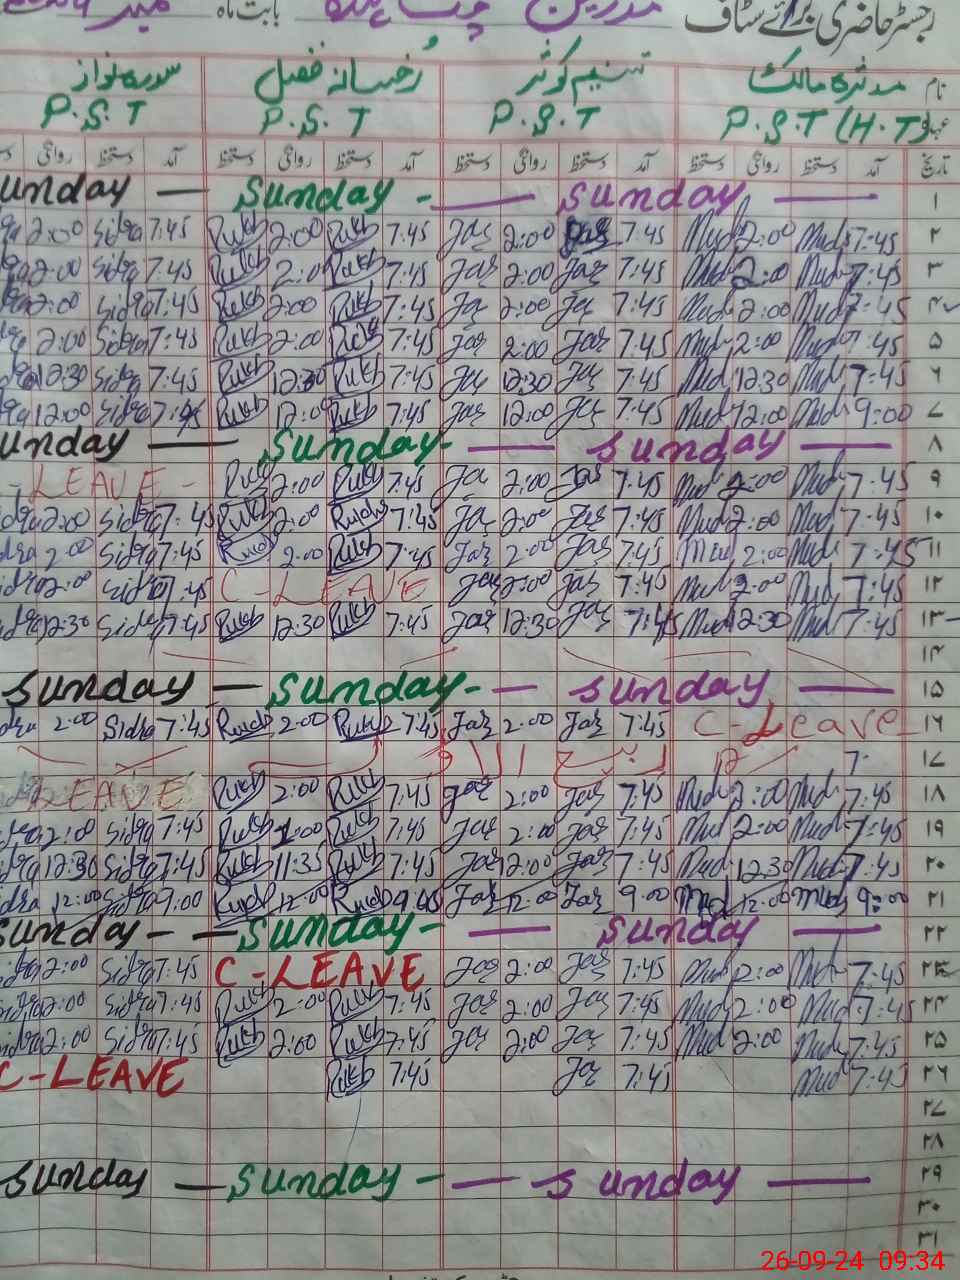 رجسٹر حاضری برائے سٹاف بابت ماہ
نام مدثرہ مالک تسنیم کوثر رُخسانہ فضیل سدرہ نواز
عہدہ P.S.T (H.T) P.S.T P.S.T P.S.T
تاریخ آمد دستخط روانگی دستخط آمد دستخط روانگی دستخط آمد دستخط روانگی دستخط آمد دستخط روانگی
۱ Sunday — Sunday - — Sunday —
۲ 7:45 Mud 2:00 Mud 7:45 Jas 2:00 Jas 7:45 Rukh 2:00 Rukh 7:45 Sidra 2:00
۳ 7:45 Mud 2:00 Mud 7:45 Jas 2:00 Jas 7:45 Rukh 2:00 Rukh 7:45 Sidra 2:00
۴ 7:45 Mud 2:00 Mud 7:45 Jas 2:00 Jas 7:45 Rukh 2:00 Rukh 7:45 Sidra 2:00
۵ 7:45 Mud 2:00 Mud 7:45 Jas 2:00 Jas 7:45 Rukh 2:00 Rukh 7:45 Sidra 2:00
۶ 7:45 Mud 12:30 Mud 7:45 Jas 12:30 Jas 7:45 Rukh 12:30 Rukh 7:45 Sidra 12:30
۷ 9:00 Mud 12:00 Mud 7:45 Jas 12:00 Jas 7:45 Rukh 12:00 Rukh 7:45 Sidra 12:00
۸ Sunday — Sunday - — Sunday —
۹ 7:45 Mud 2:00 Mud 7:45 Jas 2:00 Jas 7:45 Rukh 2:00 Rukh - LEAVE -
۱۰ 7:45 Mud 2:00 Mud 7:45 Jas 2:00 Jas 7:45 Rukh 2:00 Rukh 7:45 Sidra 2:00
۱۱ 7:45 Mud 2:00 Mud 7:45 Jas 2:00 Jas 7:45 Rukh 2:00 Rukh 7:45 Sidra 2:00
۱۲ 7:45 Mud 2:00 Mud 7:45 Jas 2:00 Jas C-LEAVE 7:45 Sidra 2:00
۱۳ 7:45 Mud 12:30 Mud 7:45 Jas 12:30 Jas 7:45 Rukh 12:30 Rukh 7:45 Sidra 12:30
۱۴
۱۵ Sunday — Sunday - — Sunday —
۱۶ C-Leave 7:45 Jas 2:00 Jas 7:45 Rukh 2:00 Rukh 7:45 Sidra 2:00
۱۷ 7- ربیع الاول
۱۸ 7:45 Mud 2:00 Mud 7:45 Jas 2:00 Jas 7:45 Rukh 2:00 Rukh LEAVE
۱۹ 7:45 Mud 2:00 Mud 7:45 Jas 2:00 Jas 7:45 Rukh 2:00 Rukh 7:45 Sidra 2:00
۲۰ 7:45 Mud 12:30 Mud 7:45 Jas 12:00 Jas 7:45 Rukh 11:35 Rukh 7:45 Sidra 12:30
۲۱ 9:00 Mud 12:00 Mud 9:00 Jas 12:00 Jas 9:45 Rukh 12:00 Rukh 9:00 Sidra 12:00
۲۲ Sunday - — Sunday - — Sunday —
۲۳ 7:45 Mud 2:00 Mud 7:45 Jas 2:00 Jas C-LEAVE 7:45 Sidra 2:00
۲۴ 7:45 Mud 2:00 Mud 7:45 Jas 2:00 Jas 7:45 Rukh 2:00 Rukh 7:45 Sidra 2:00
۲۵ 7:45 Mud 2:00 Mud 7:45 Jas 2:00 Jas 7:45 Rukh 2:00 Rukh 7:45 Sidra 2:00
۲۶ 7:45 Mud 7:45 Jas 7:45 Rukh C-LEAVE
۲۷
۲۸
۲۹ Sunday — Sunday - — Sunday —
۳۰
۳۱
26-09-24 09:34